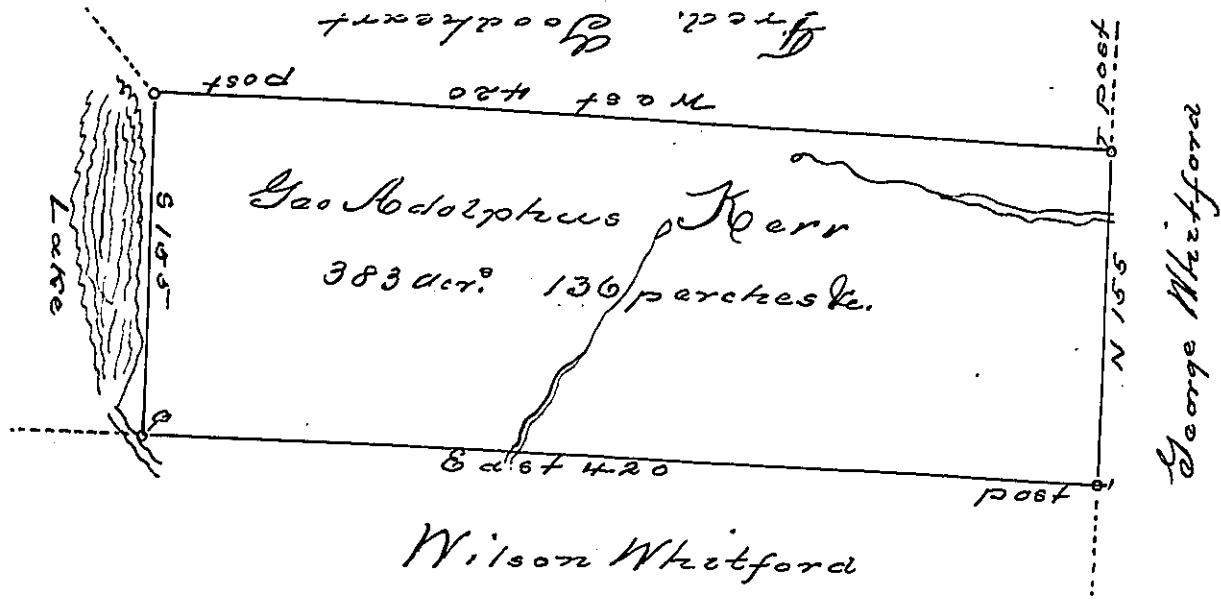 Fred. Goodheart
post
West 420
post
Lake
S 155
Geo Adolphus Kerr
383 acr.s 136 perches &c.
N 155
George Whitford
East 420
post
Wilson Whitford